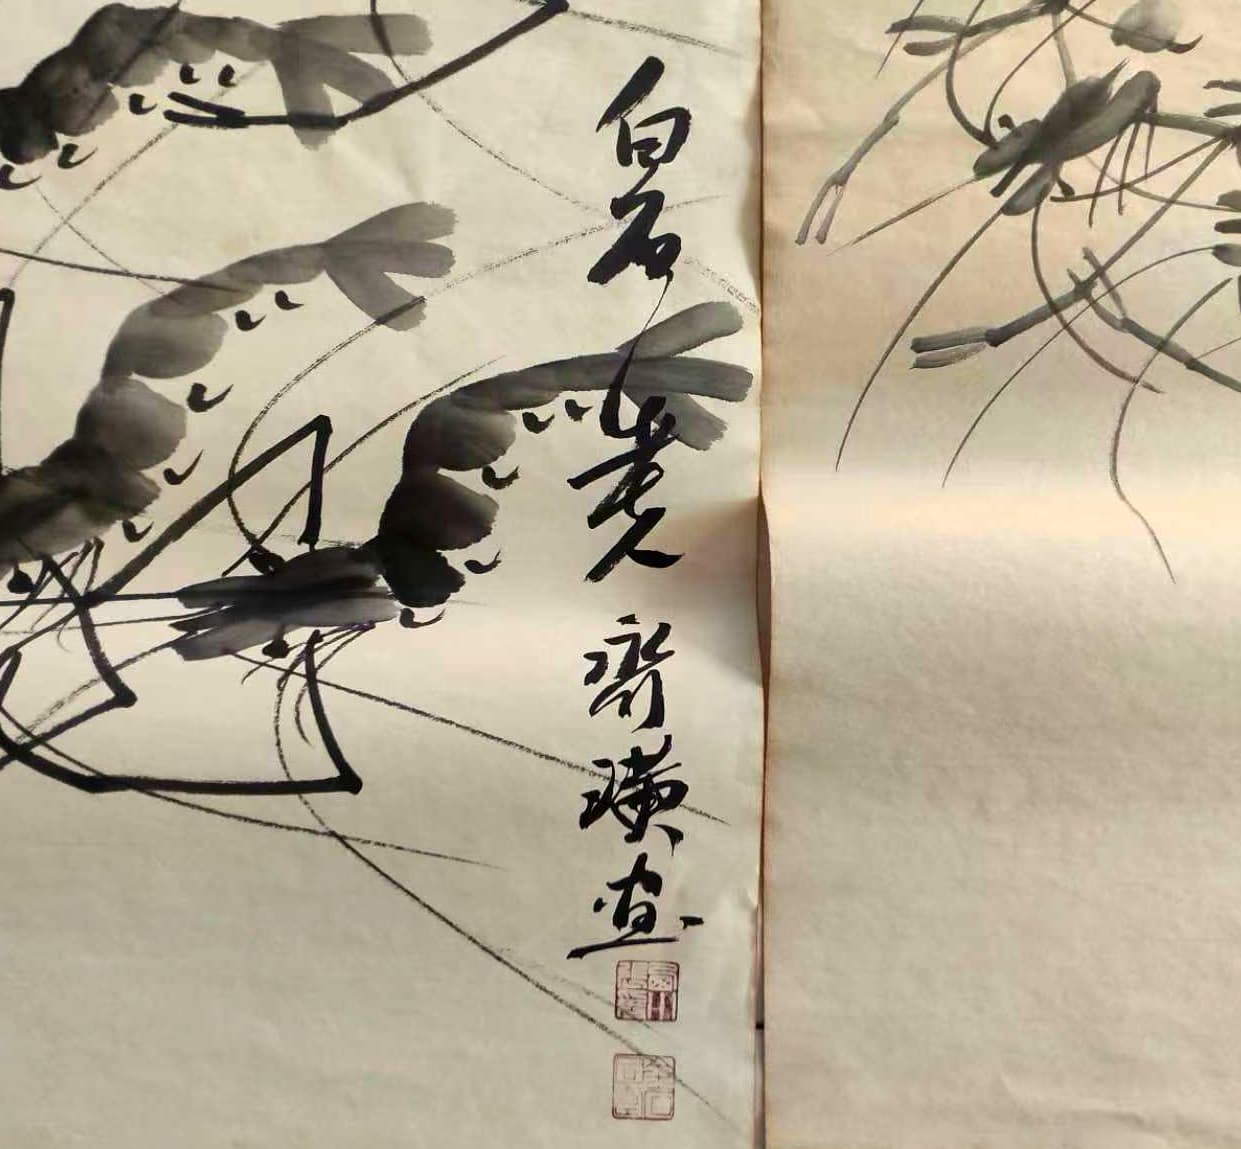 白石老人齊璜畫